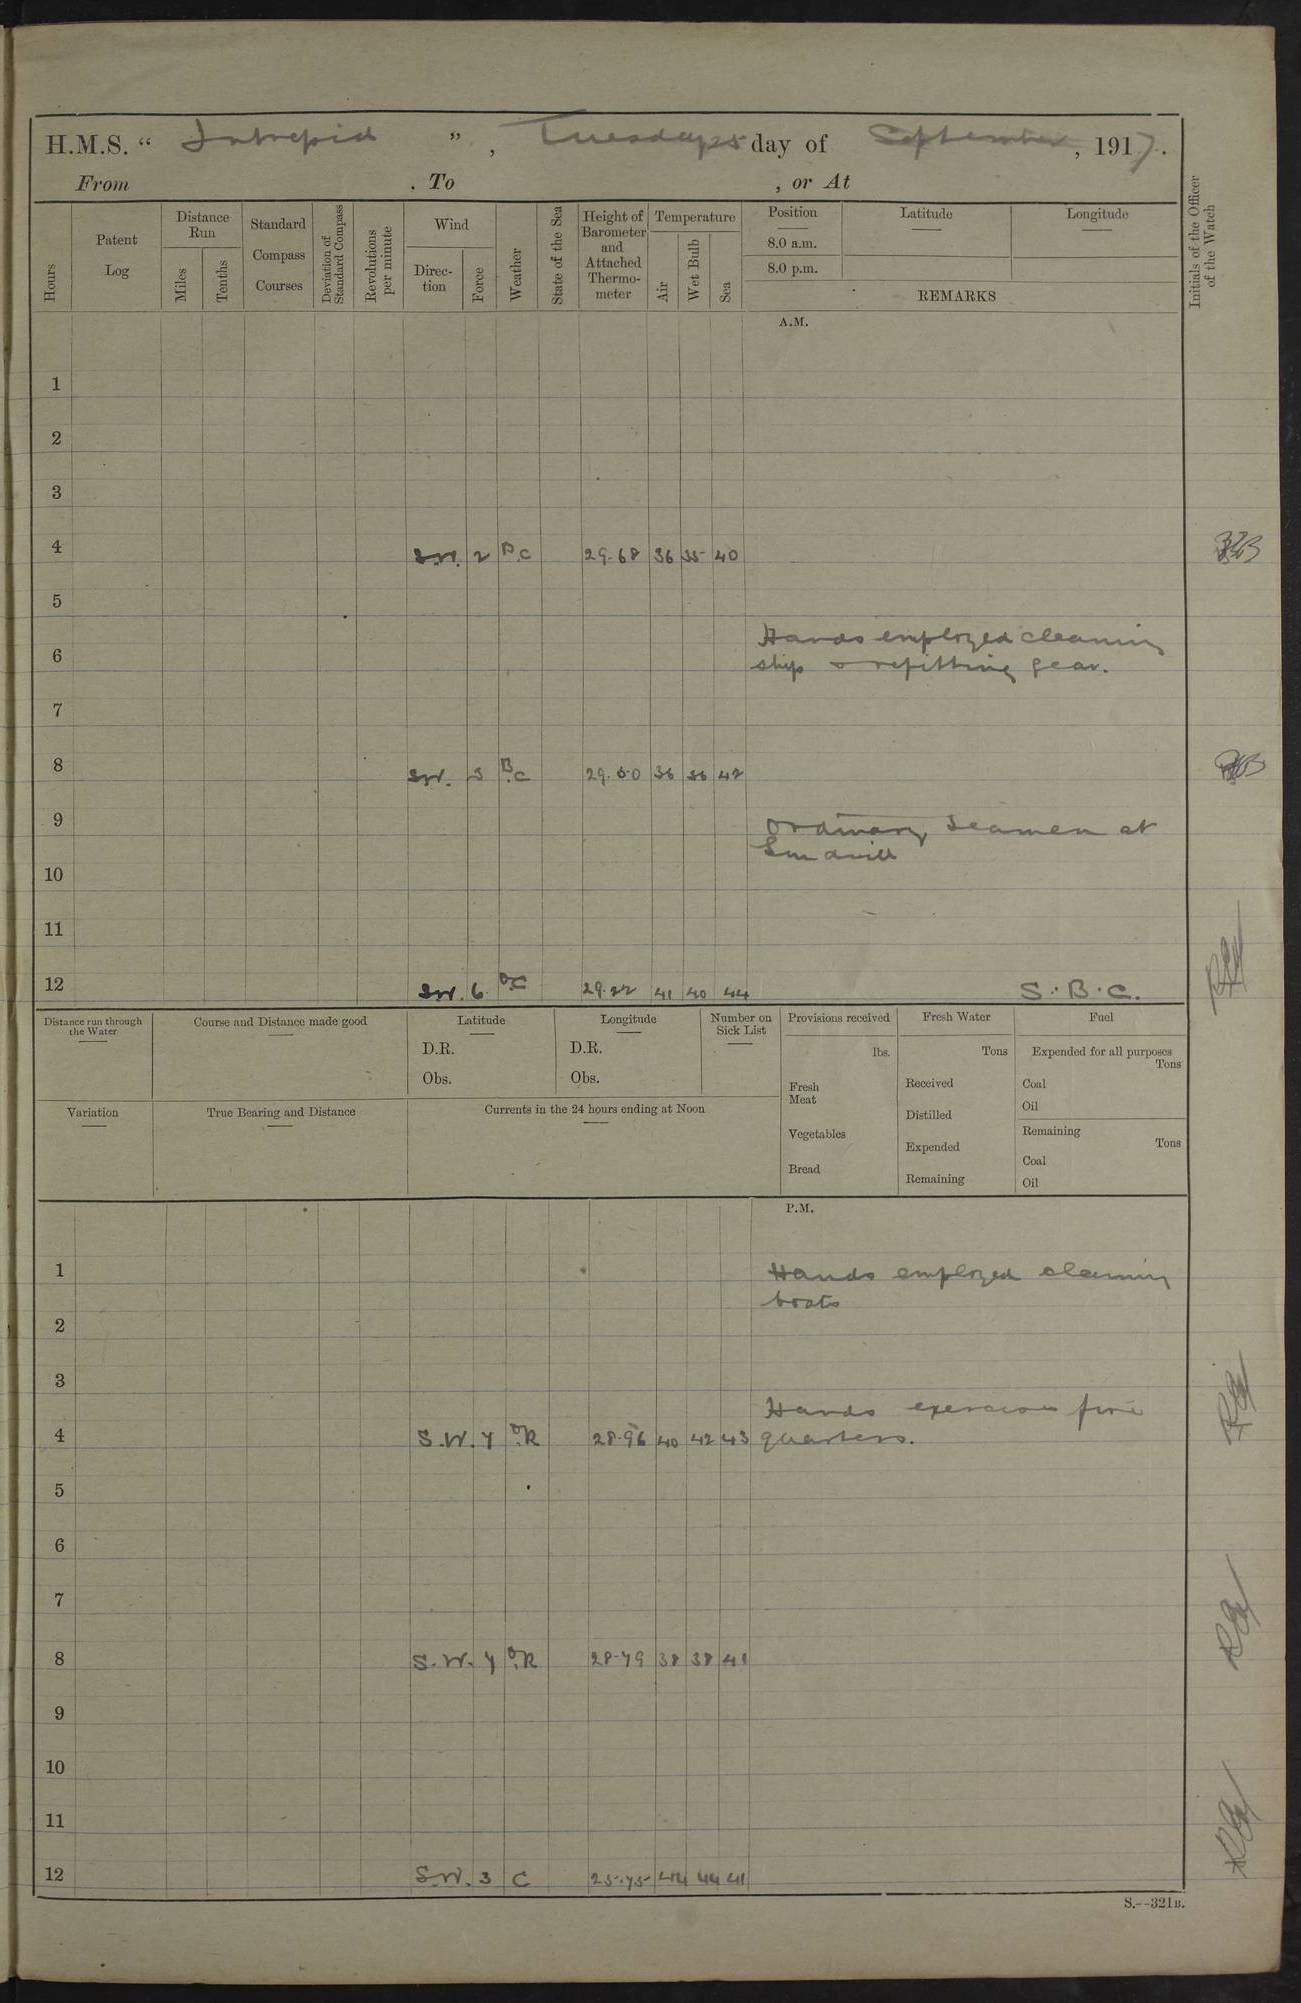 H.M.S. “ Intrepid ”, Tuesday 25 day of September, 1917.
From . To , or At
Hours
Patent Log
Distance Run
Miles
Tenths
Standard Compass Courses
Deviation of Standard Compass
Revolutions per minute
Wind
Direction
Force
Weather
State of the Sea
Height of Barometer and Attached Thermometer
Temperature
Air
Wet Bulb
Sea
Position
8.0 a.m.
8.0 p.m.
Latitude
Longitude
REMARKS
Initials of the Officer of the Watch
A.M.
1
2
3
4 S.W. 2 B.C 29.68 36 35 40
5
Hands employed cleaning
6 ship & refitting gear.
7
8 S.W. 3 B.C 29.50 36 36 42
9 Ordinary Seamen at
Gun drill
10
11
12 S.W. 6 O.C 29.22 41 40 44 S.B.C.
Distance run through the Water
Course and Distance made good
Latitude
D.R.
Obs.
Longitude
D.R.
Obs.
Number on Sick List
Provisions received
lbs.
Fresh Meat
Vegetables
Bread
Fresh Water
Tons
Received
Distilled
Expended
Remaining
Fuel
Expended for all purposes
Tons
Coal
Oil
Remaining
Tons
Coal
Oil
Variation
True Bearing and Distance
Currents in the 24 hours ending at Noon
P.M.
1 Hands employed cleaning
boats
2
3
Hands exercise fire
4 S.W. 7 O.R 28.96 40 42 43 quarters.
5
6
7
8 S.W. 7 O.R 28.79 38 38 41
9
10
11
12 S.W. 3 C 44 44 41
S.--321B.